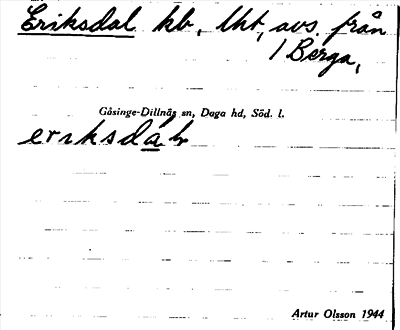 Eriksdal hb, lht, avs. från
1 Berga,
Gåsinge-Dillnäs sn, Daga hd, Söd. l.
eriksdà̲l
Artur Olsson 1944